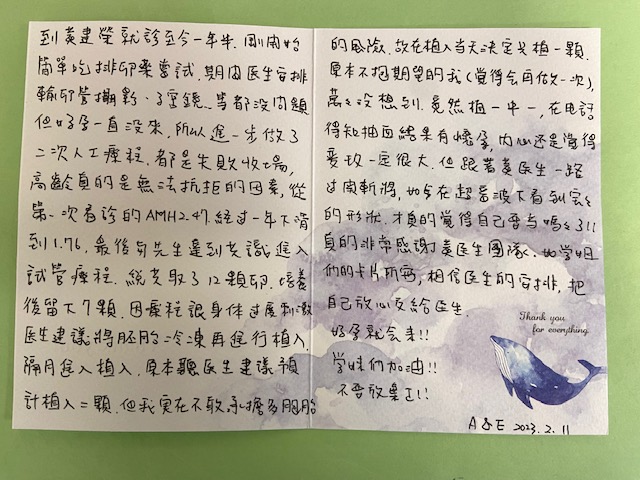 到黃建榮就診至今一年半，剛開始
簡單吃排卵藥嘗試，期間医生安排
輸卵管攝影、子宮鏡…等都沒問題
但好孕一直沒來，所以進一步做了
二次人工療程，都是失敗收場，
高齡真的是無法抗拒的因素，從
第一次看診的AMH 2.47，經过一年下滑
到1.76，最後与先生達到共識進入
試管療程，總共取了12顆卵，培養
後留下7顆，因療程讓身体过度刺激
医生建議將胚胎冷凍再進行植入，
隔月進入植入，原本聽医生建議預
計植入二顆，但我实在不敢承擔多胞胎
的風險，故在植入当天決定只植一顆，
原本不抱期望的我(覺得会再做一次)，
萬萬沒想到，竟然植一中一，在电話
得知抽血結果有懷孕，內心还是覺得
变玫一定很大，但跟著黃医生一路
过関斬將，如今在超音波下看到宝宝
的形狀，才真的覺得自己要当媽媽了!!
真的非常感謝黃医生團隊，如学姐
們的卡片所写，相信医生的安排，把
自己放心交給医生
好孕就会來!!
学妹們加油!!
不要放棄!!
Thank you
for everything.
A&E 2023.2.11